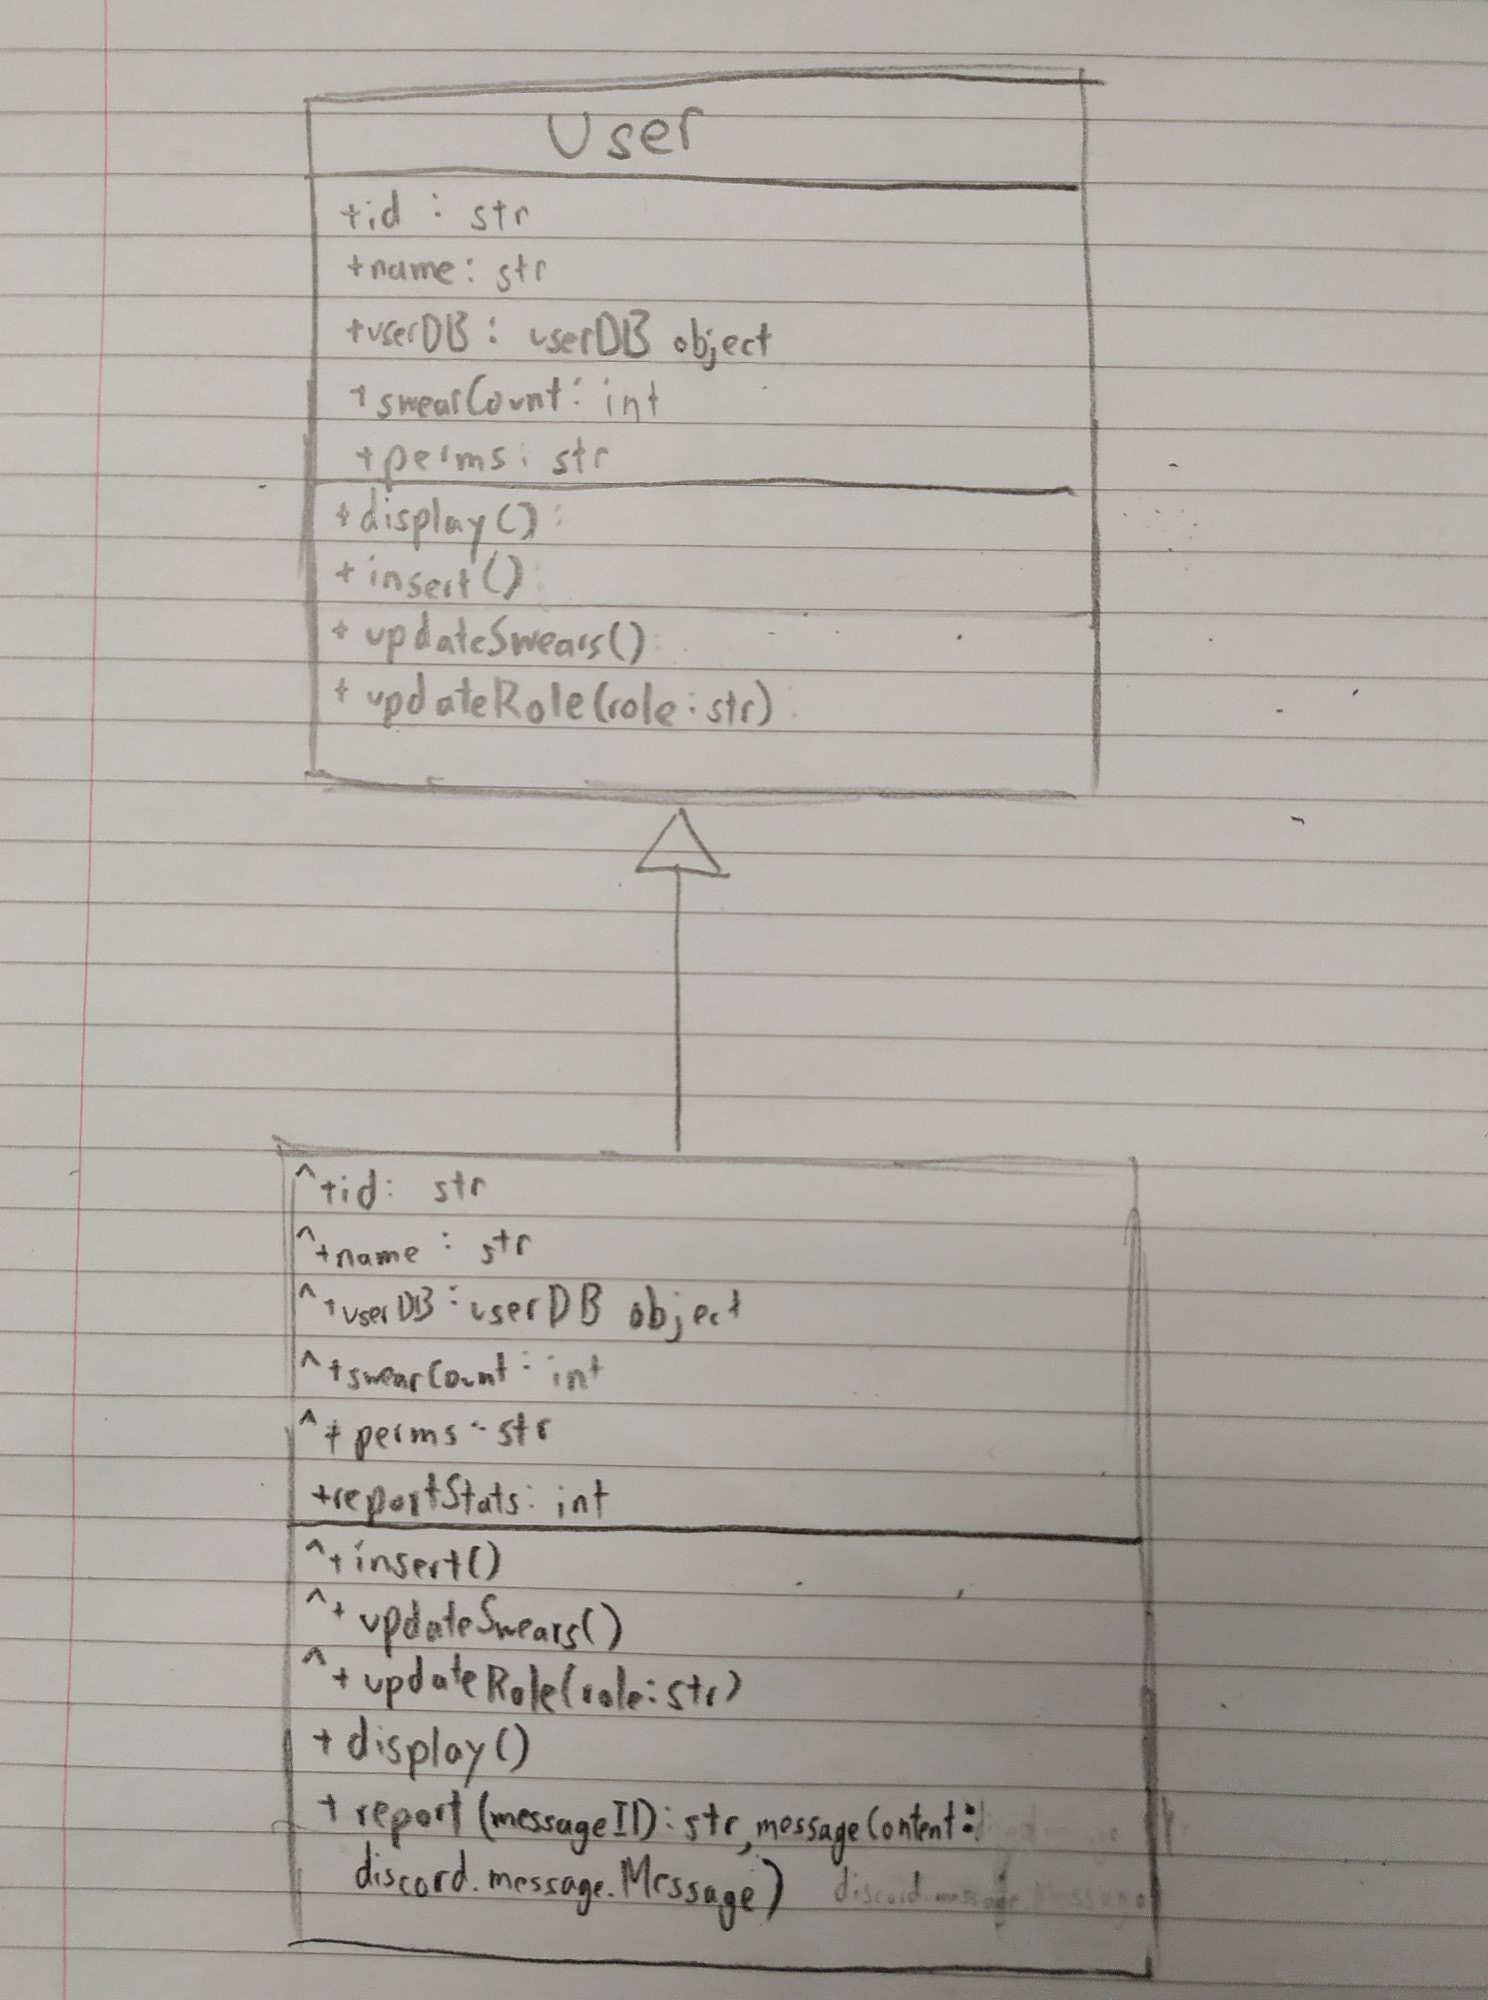 User
+id : str
+name: str
+userDB: userDB object
+swearCount: int
+perms: str
+display()
+insert()
+updateSwears()
+updateRole(role:str)
^+id: str
^+name: str
^+userDB:userDB object
^+swearCount: int
^+perms: str
+reportStats: int
^+insert()
^+updateSwears()
^+updateRole(role:str)
+display()
+report(messageID:str,messageContent:
discord.message.Message) discord.message.Message